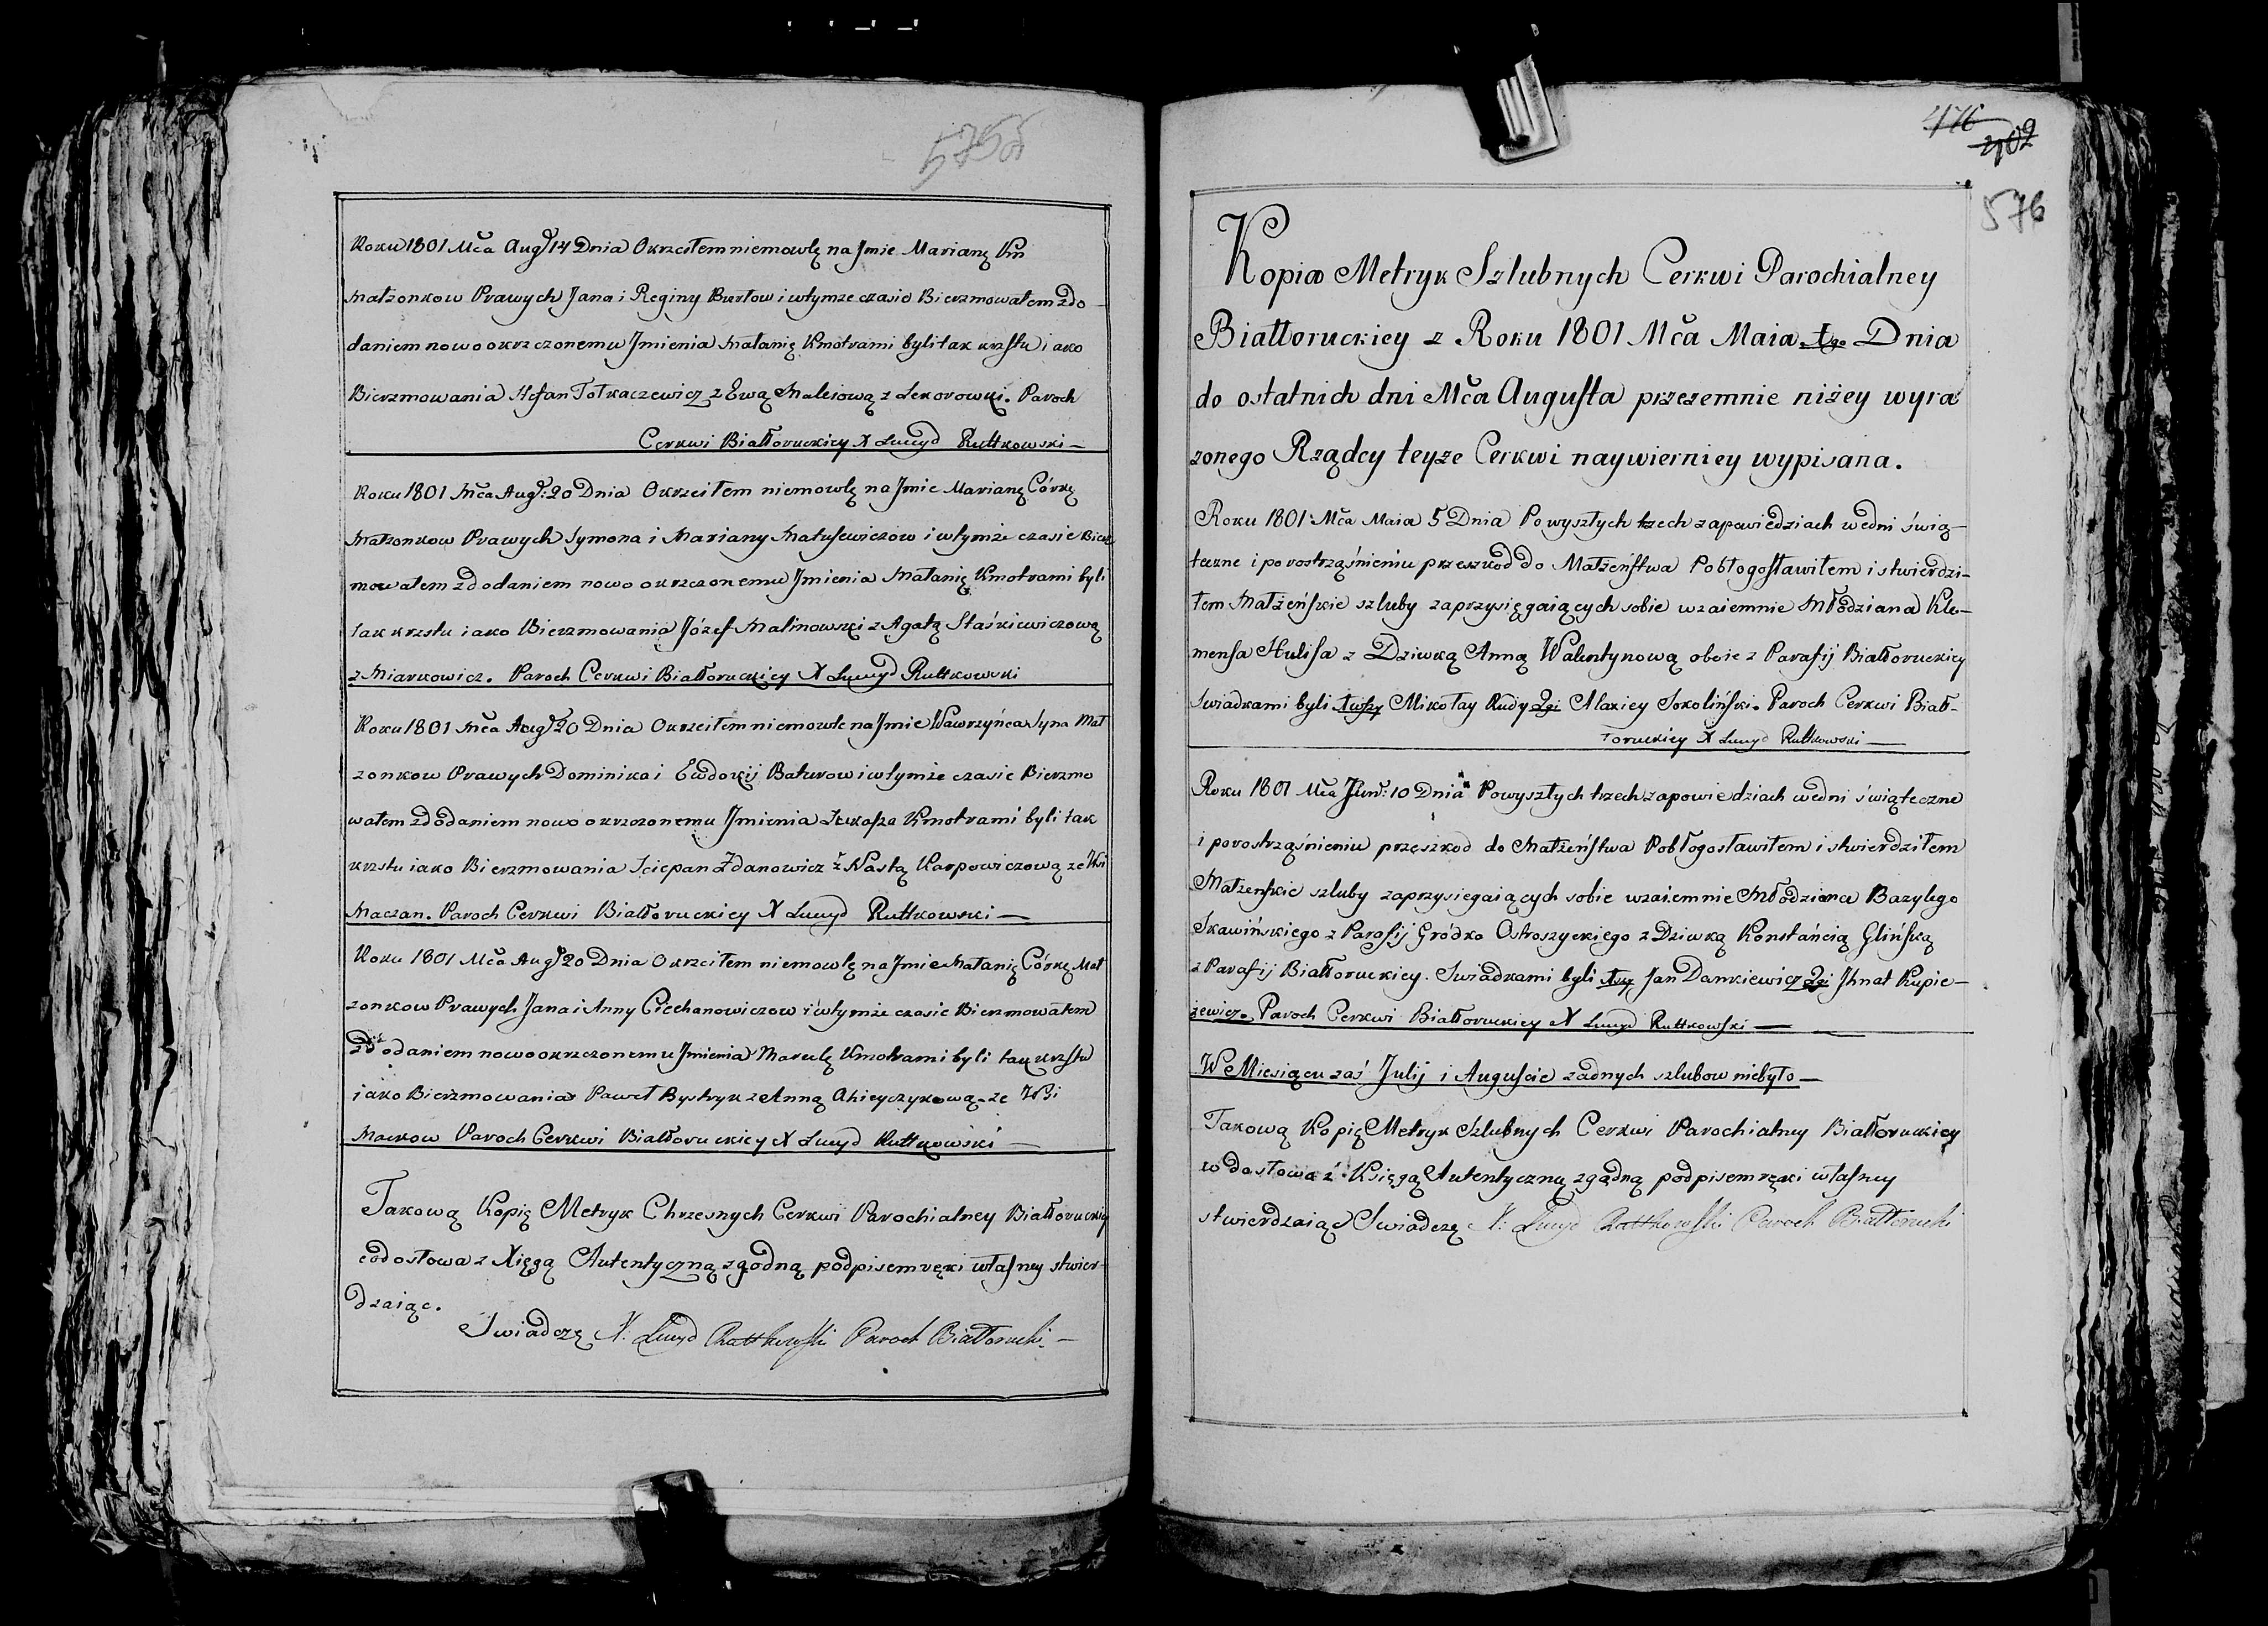 575об
Roku 1801 Mča Augt 14 Dnia Okrzciłem niemowlę na Jmie Marianę
Małzonkow Prawych Jana i Reginy Burłow i wtymze czasie Bierzmowałem zdo
daniem nowo okrzczonemu Jmienia Małanię Kmotrami byli tak krzstu iako
Bierzmowania Stefan Tołkaczewicz z Ewą Malisową z Sekorowki. Paroch
Cerkwi Białłoruckiey X Lucyd Ruttkowski —
Roku 1801 Mča Augt: 20 Dnia Okrzciłem niemowlę na Jmie Mariannę Córkę
Małzonkow Prawych Symona i Marianny Matusewiczow i wtymże czasie Bierz
mowałem zdodaniem nowo okrzczonemu Jmienia Małanię Kmotrami byli
tak krzstu iako Bierzmowania Józef Malinowski z Agatą Staśkiewiczową
z Miarkowicz. Paroch Cerkwi Białłoruckiey X Lucyd Ruttkowski
Roku 1801 Mča Augt 20 Dnia Okrzciłem niemowle na Jmie Wawrzyńca Syna Mał
zonkow Prawych Dominika i Ewdokij Baturow i wtymże czasie Bierzmo
wałem zdodaniem nowo okrzczonemu Jmienia Łukasza Kmotrami byli tak
krzstu iako Bierzmowania Sciepan Zdanowicz z Nastą Karpowiczową ze Wsi
Maczan. Paroch Cerkwi Białłoruckiey X Lucyd Ruttkowski —
Roku 1801 Mča Augt 20 Dnia Okrzciłem niemowlę na Jmie Małanię Córkę Mał
zonkow Prawych Jana i Anny Ciechanowiczow i wtymże czasie Bierzmowałem
zdodaniem nowo okrzczonemu Jmienia Marulę Kmotrami byli tak krzstu
iako Bierzmowania Paweł Bystryk z Anną Ahieyczykową ze Wsi
Mackow Paroch Cerkwi Białłoruckiey X Lucyd Ruttkowski —
Takową Kopię Metryk Chrzesnych Cerkwi Parochialney Białłoruckiey
codosłowa z Xięgą Autentyczną zgodną podpisem ręki własney stwier-
dzaiąc.
Swiadczę X. Lucyd Ruttkowski Paroch Białłorucki —
476
402
576
Kopia Metryk Szlubnych Cerkwi Parochialney
Białłoruckiey z Roku 1801 Mča Maia 1go Dnia
do ostatnich dni Mča Augusta przezemnie niżey wyra
zonego Rządcy teyze Cerkwi naywierniey wypisana.
Roku 1801 Mča Maia 5 Dnia Powyszłych trzech zapowiedziach wedni świą-
teczne i porostrząśnieniu przeszkod do Małżeństwa Pobłogosławiłem i stwierdzi-
łem Małżeńskie szluby zaprzysięgaiących sobie wzaiemnie Młodziana Kle-
mensa Hulisa z Dziwką Anną Walentynową oboie z Parafij Białłoruckiey
Swiadkami byli 1wszy Mikołay Rudy 2gi Alaxiey Sokoliński. Paroch Cerkwi Biał-
łoruckiey X Lucyd Ruttkowski —
Roku 1801 Mča Junÿ: 10 Dnia Powyszłych trzech zapowiedziach wedni świąteczne
i porostrząśnieniu przęszkod do Małżeństwa Pobłogosławiłem i stwierdziłem
Małzenskie szluby zaprzysiegaiących sobie wzaiemnie Młodzianca Bazylego
Skawińskiego z Parafij Gródka Ostroszyckiego z Dziwką Konstańcią Glińską
z Parafij Białłoruckiey. Swiadkami byli 1wszy Jan Dankiewicz 2gi Jhnat Kupie-
zewicz. Paroch Cerkwi Białłoruckiey X Lucyd Ruttkowski —
W Miesiącu zaś Julij i Auguscie zadnych szlubow niebyło —
Takową Kopię Metryk Szlubnych Cerkwi Parochialney Białłoruckiey
co dosłowa z Księgą Autentyczną zgadną podpisem ręki własney
stwierdzaiąc Swiadczę X. Lucyd Ruttkowski Paroch Białłorucki